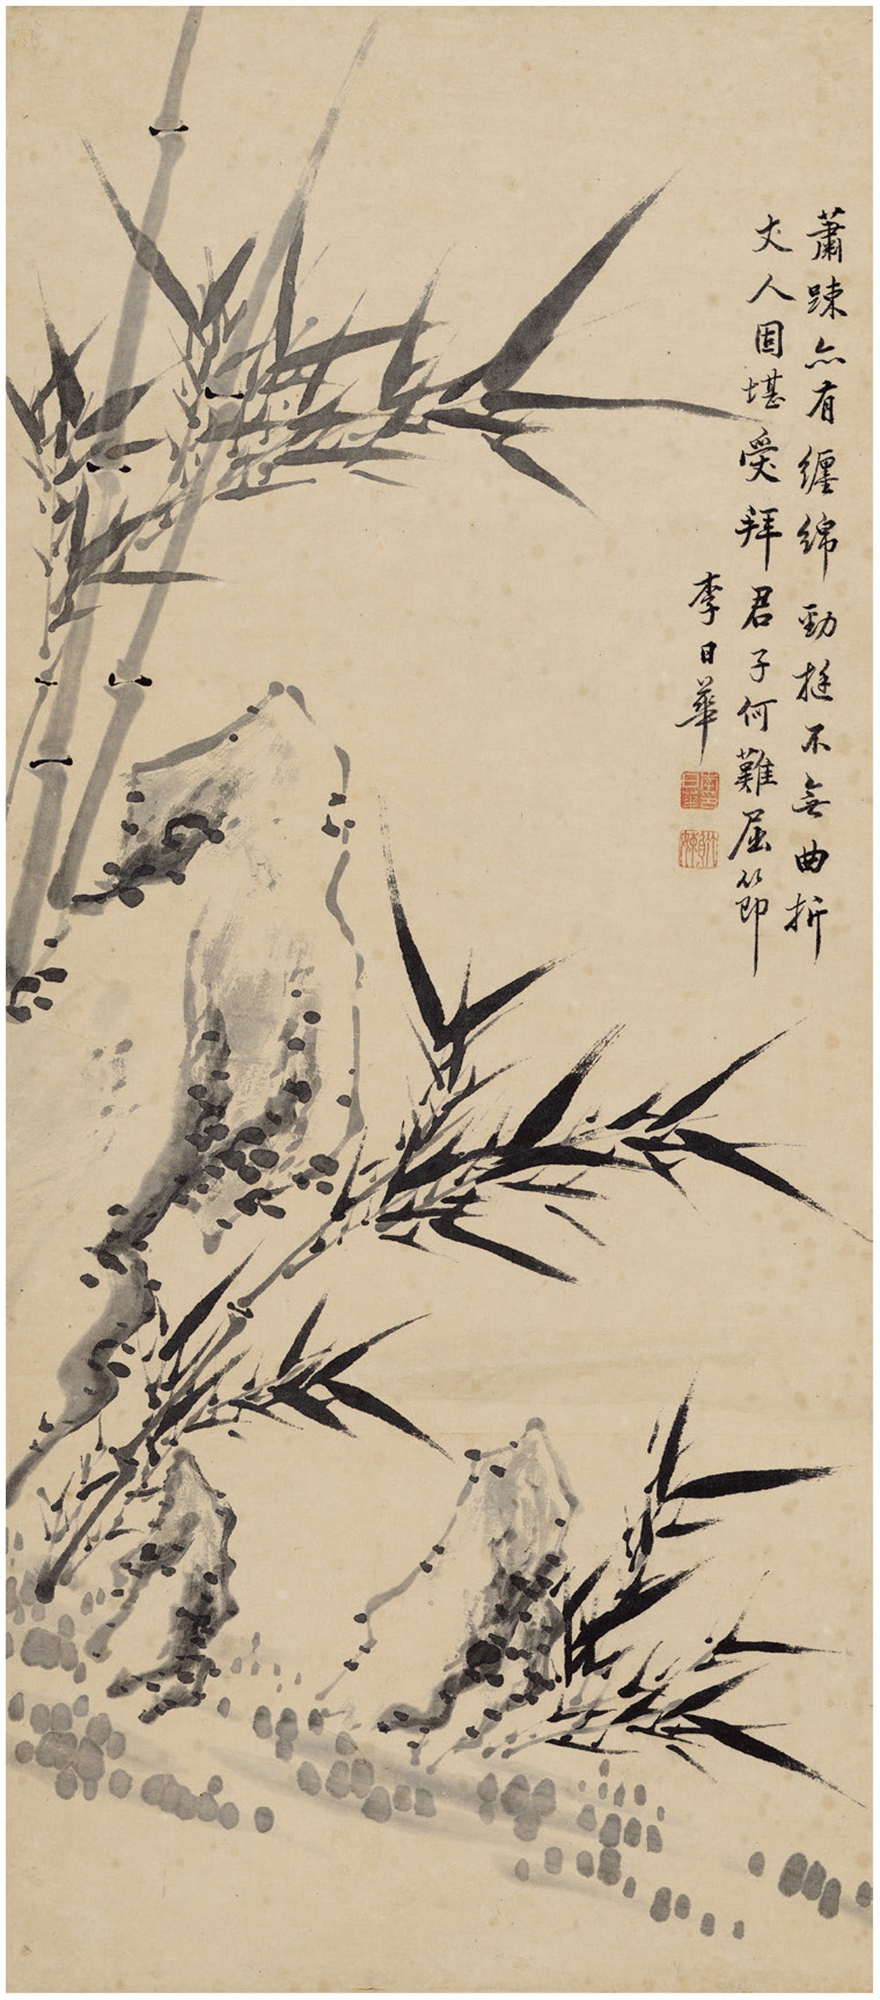 蕭踈亦有纏綿勁挺不無曲折
丈人固堪受拜君子何難屈節
李日華